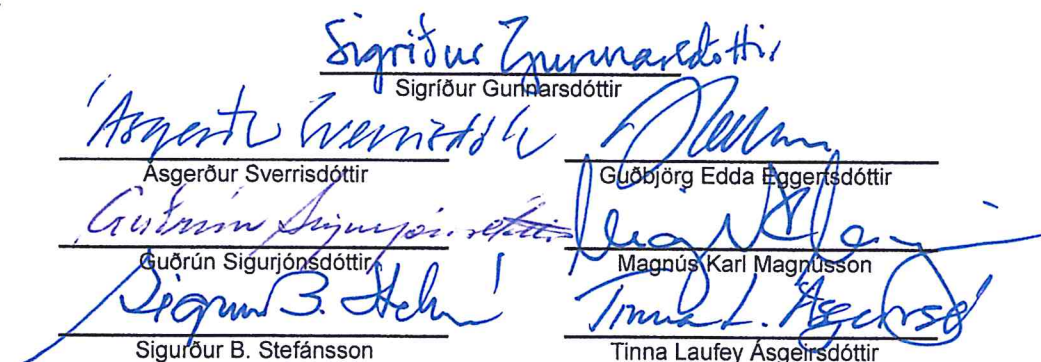 Sigríður Gunnarsdóttir
Sigríður Gunnarsdóttir
Ásgerður Sverrisdóttir
Ásgerður Sverrisdóttir
Guðbjörg Edda Eggertsdóttir
Guðrún Sigurjónsdóttir
Guðrún Sigurjónsdóttir
Magnús Karl Magnússon
Sigurður B. Stefánsson
Tinna L. Ásgeirsd
Tinna Laufey Ásgeirsdóttir